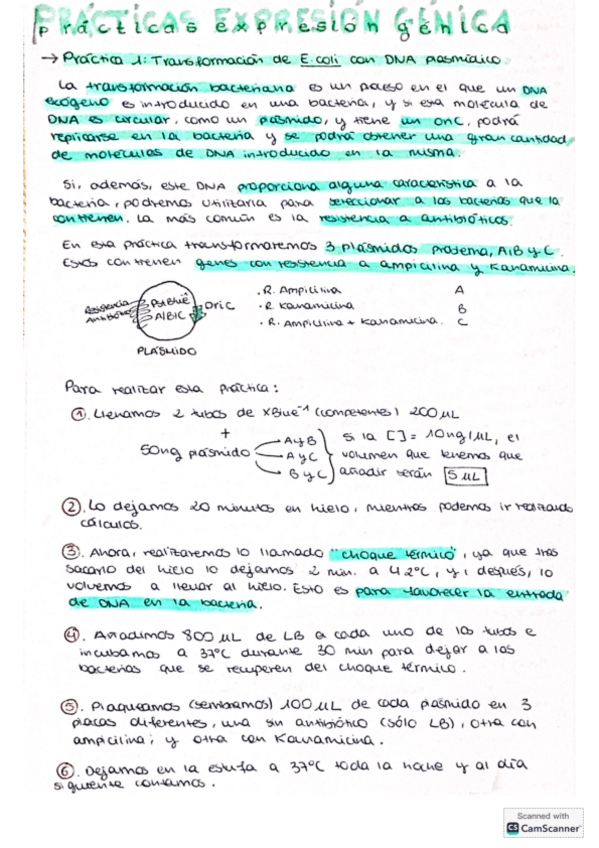 PRÁCTICAS EXPRESIÓN GÉNICA
prácticas expresión génica
→ Práctica 1: Transformación de E.coli con DNA plasmídico.
La transformación bacteriana es un paso en el que un DNA
exógeno es introducido en una bacteria, y si esa molécula de
DNA es circular, como un plásmido, y tiene un oriC, podrá
replicarse en la bacteria y se podrá obtener una gran cantidad
de moléculas de DNA introducido en la misma.
Si, además, este DNA proporciona alguna característica a la
bacteria, podremos utilizarla para seleccionar a las bacterias que la
contienen. La más común es la resistencia a antibióticos.
En esta práctica transformaremos 3 plásmidos problema, A,B y C.
Estos contienen genes con resistencia a ampicilina y Kanamicina.
Resistencia
Antibiótico
PstBlue
A/B/C
OriC
PLÁSMIDO
· R. Ampicilina A
· R Kanamicina B
· R. Ampicilina + Kanamicina. C
Para realizar esta práctica:
①. Llenamos 2 tubos de XBlue⁻¹ (competentes) 200 µL
+
50ng plásmido
A y B
A y C
B y C
si la [ ] = 10ng/µL, el
volumen que tenemos que
añadir serán 5 µL
②. Lo dejamos 20 minutos en hielo, mientras podemos ir realizando
cálculos.
③. Ahora, realizaremos lo llamado "choque térmico", ya que tras
sacarlo del hielo lo dejamos 2 min. a 42ºC, y, después, lo
volvemos a llevar al hielo. Esto es para favorecer la entrada
de DNA en la bacteria.
④. Añadimos 800 µL de LB a cada uno de los tubos e
incubamos a 37ºC durante 30 min para dejar a las
bacterias que se recuperen del choque térmico.
⑤. Plaqueamos (sembramos) 100 µL de cada plásmido en 3
placas diferentes, una sin antibiótico (sólo LB), otra con
ampicilina; y otra con Kanamicina.
⑥. Dejamos en la estufa a 37ºC toda la noche y al día
siguiente contamos.
Scanned with
CS CamScanner